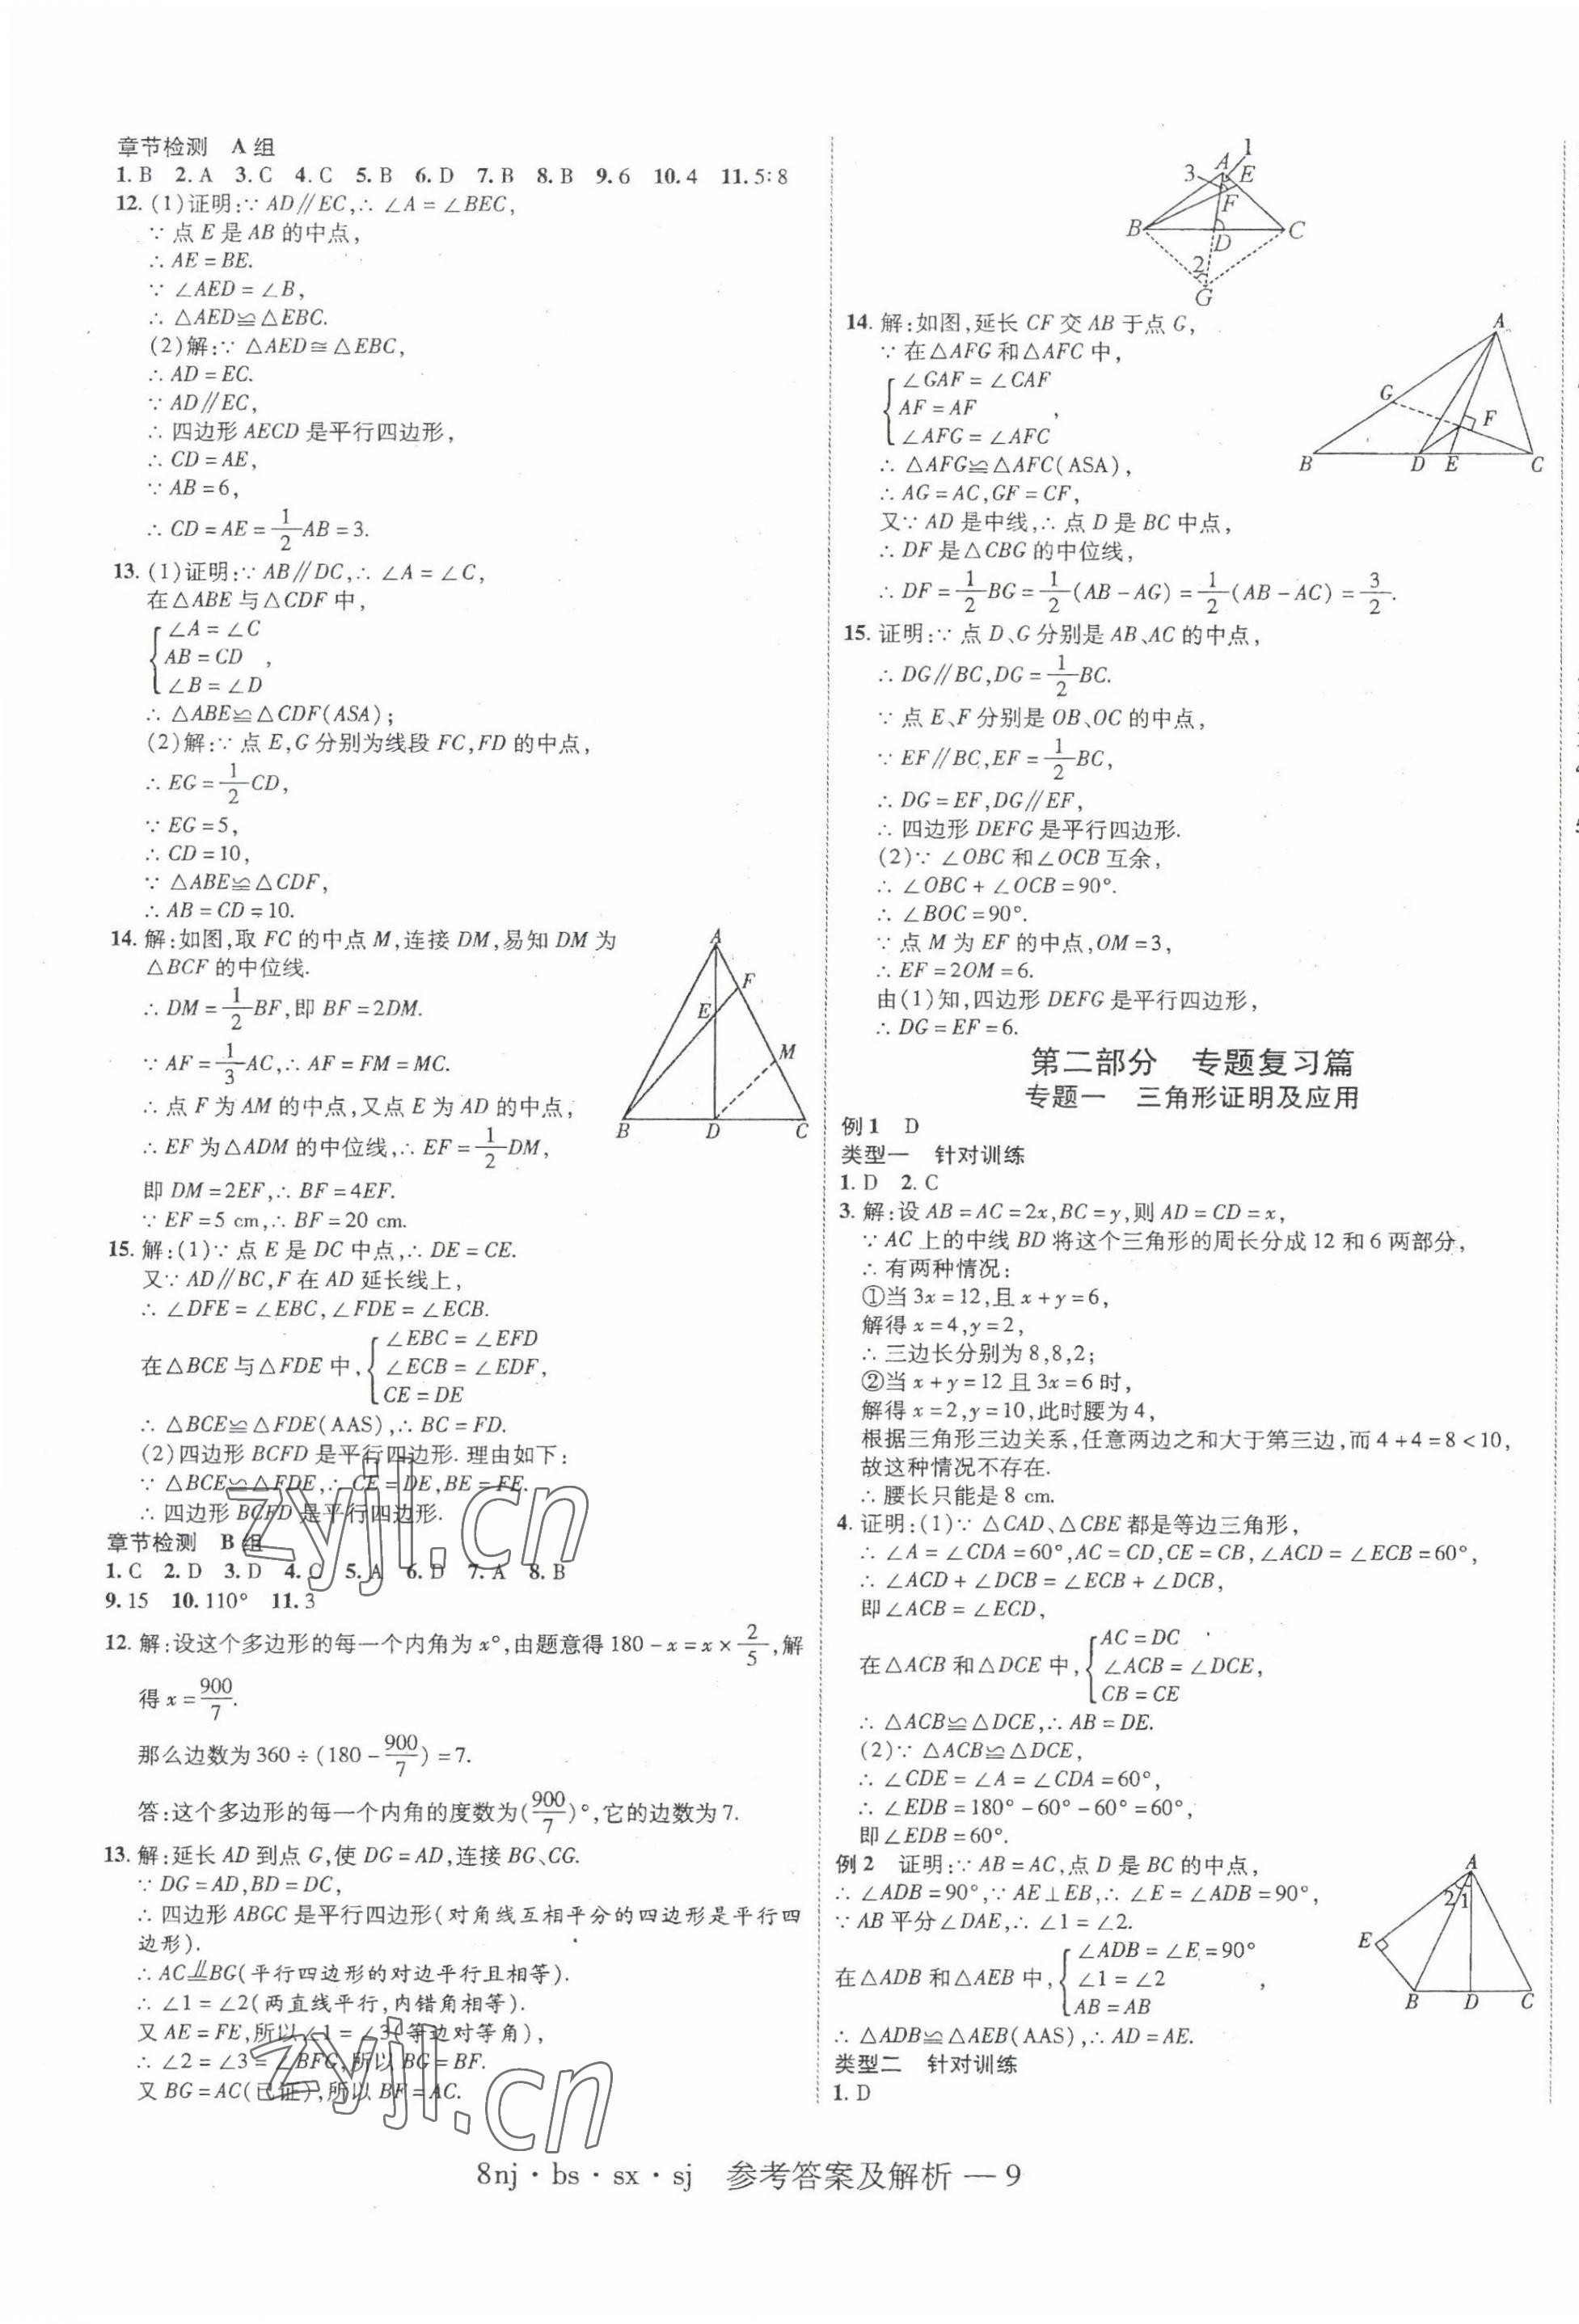 章节检测 A 组
1. B 2. A 3. C 4. C 5. B 6. D 7. B 8. B 9. 6 10. 4 11. 5∶8
12. (1)证明:∵ AD∥EC,∴ ∠A = ∠BEC,
∵ 点 E 是 AB 的中点,
∴ AE = BE.
∵ ∠AED = ∠B,
∴ △AED≌△EBC.
(2)解:∵ △AED≅△EBC,
∴ AD = EC.
∵ AD∥EC,
∴ 四边形 AECD 是平行四边形,
∴ CD = AE,
∵ AB = 6,
∴ CD = AE = 1/2 AB = 3.
13. (1)证明:∵ AB∥DC,∴ ∠A = ∠C,
在△ABE 与△CDF 中,
∠A = ∠C
AB = CD ,
∠B = ∠D
∴ △ABE≌△CDF(ASA);
(2)解:∵ 点 E,G 分别为线段 FC,FD 的中点,
∴ EG = 1/2 CD,
∵ EG = 5,
∴ CD = 10,
∵ △ABE≌△CDF,
∴ AB = CD = 10.
14. 解:如图,取 FC 的中点 M,连接 DM,易知 DM 为
△BCF 的中位线.
∴ DM = 1/2 BF,即 BF = 2DM.
∵ AF = 1/3 AC,∴ AF = FM = MC.
∴ 点 F 为 AM 的中点,又点 E 为 AD 的中点,
∴ EF 为△ADM 的中位线,∴ EF = 1/2 DM,
即 DM = 2EF,∴ BF = 4EF.
∵ EF = 5 cm,∴ BF = 20 cm.
A
F
E
M
B D C
15. 解:(1)∵ 点 E 是 DC 中点,∴ DE = CE.
又∵ AD∥BC,F 在 AD 延长线上,
∴ ∠DFE = ∠EBC,∠FDE = ∠ECB.
∠EBC = ∠EFD
在△BCE 与△FDE 中, ∠ECB = ∠EDF,
CE = DE
∴ △BCE≌△FDE(AAS),∴ BC = FD.
(2)四边形 BCFD 是平行四边形. 理由如下:
∵ △BCE≌△FDE,∴ CE = DE,BE = FE.
∴ 四边形 BCFD 是平行四边形.
zyjl.cn
章节检测 B 组
1. C 2. D 3. D 4. C 5. A 6. D 7. A 8. B
9. 15 10. 110° 11. 3
12. 解:设这个多边形的每一个内角为 x°,由题意得 180 - x = x × 2/5,解
得 x = 900/7.
那么边数为 360 ÷ (180 - 900/7) = 7.
答:这个多边形的每一个内角的度数为(900/7)°,它的边数为 7.
13. 解:延长 AD 到点 G,使 DG = AD,连接 BG、CG.
∵ DG = AD,BD = DC,
∴ 四边形 ABGC 是平行四边形(对角线互相平分的四边形是平行四
边形).
∴ AC∥BG(平行四边形的对边平行且相等).
∴ ∠1 = ∠2(两直线平行,内错角相等).
又 AE = FE,所以∠1 = ∠3(等边对等角),
∴ ∠2 = ∠3 = ∠BFG,所以 BG = BF.
又 BG = AC(已证),所以 BF = AC.
zyjl.cn
1
A
3 E
F
B D C
2
G
14. 解:如图,延长 CF 交 AB 于点 G,
∵ 在△AFG 和△AFC 中,
∠GAF = ∠CAF
AF = AF ,
∠AFG = ∠AFC
∴ △AFG≌△AFC(ASA),
∴ AG = AC,GF = CF,
又∵ AD 是中线,∴ 点 D 是 BC 中点,
∴ DF 是△CBG 的中位线,
∴ DF = 1/2 BG = 1/2 (AB - AG) = 1/2 (AB - AC) = 3/2.
A
G
F
B D E C
15. 证明:∵ 点 D、G 分别是 AB、AC 的中点,
∴ DG∥BC,DG = 1/2 BC.
∵ 点 E、F 分别是 OB、OC 的中点,
∵ EF∥BC,EF = 1/2 BC,
∴ DG = EF,DG∥EF,
∴ 四边形 DEFG 是平行四边形.
(2)∵ ∠OBC 和∠OCB 互余,
∴ ∠OBC + ∠OCB = 90°.
∴ ∠BOC = 90°.
∵ 点 M 为 EF 的中点,OM = 3,
∴ EF = 2OM = 6.
由(1)知,四边形 DEFG 是平行四边形,
∴ DG = EF = 6.
第二部分 专题复习篇
专题一 三角形证明及应用
例 1 D
类型一 针对训练
1. D 2. C
3. 解:设 AB = AC = 2x,BC = y,则 AD = CD = x,
∵ AC 上的中线 BD 将这个三角形的周长分成 12 和 6 两部分,
∴ 有两种情况:
①当 3x = 12,且 x + y = 6,
解得 x = 4,y = 2,
∴ 三边长分别为 8,8,2;
②当 x + y = 12 且 3x = 6 时,
解得 x = 2,y = 10,此时腰为 4,
根据三角形三边关系,任意两边之和大于第三边,而 4 + 4 = 8 < 10,
故这种情况不存在.
∴ 腰长只能是 8 cm.
4. 证明:(1)∵ △CAD、△CBE 都是等边三角形,
∴ ∠A = ∠CDA = 60°,AC = CD,CE = CB,∠ACD = ∠ECB = 60°,
∴ ∠ACD + ∠DCB = ∠ECB + ∠DCB,
即∠ACB = ∠ECD,
AC = DC
在△ACB 和△DCE 中, ∠ACB = ∠DCE,
CB = CE
∴ △ACB≌△DCE,∴ AB = DE.
(2)∵ △ACB≌△DCE,
∴ ∠CDE = ∠A = ∠CDA = 60°,
∴ ∠EDB = 180° - 60° - 60° = 60°,
即∠EDB = 60°.
例 2 证明:∵ AB = AC,点 D 是 BC 的中点,
∴ ∠ADB = 90°,∵ AE⊥EB,∴ ∠E = ∠ADB = 90°,
∵ AB 平分∠DAE,∴ ∠1 = ∠2.
∠ADB = ∠E = 90°
在△ADB 和△AEB 中, ∠1 = ∠2 ,
AB = AB
∴ △ADB≌△AEB(AAS),∴ AD = AE.
A
2 1
E
B D C
类型二 针对训练
1. D
8nj · bs · sx · sj 参考答案及解析 — 9